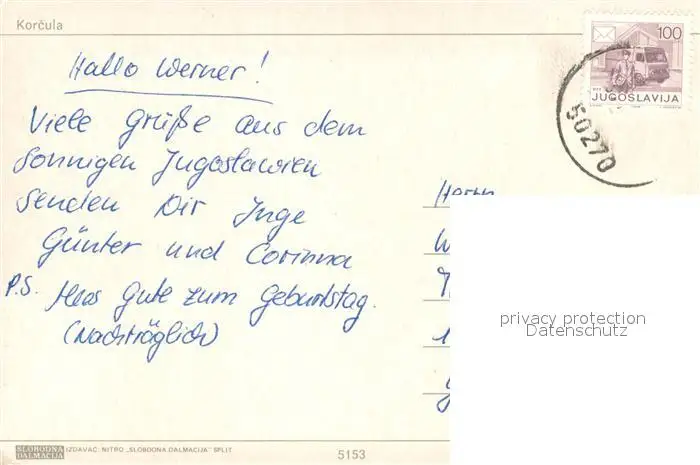 Korčula
Hallo Werner!
Viele Grüße aus dem
sonnigen Jugoslawien
senden Dir Inge
Günter und Corinna
P.S. Alles Gute zum Geburtstag.
(Nachträglich)
100
JUGOSLAVIJA
50270
Herrn
privacy protection
Datenschutz
SLOBODNA
DALMACIJA
IZDAVAČ: NITRO „SLOBODNA DALMACIJA" SPLIT
5153